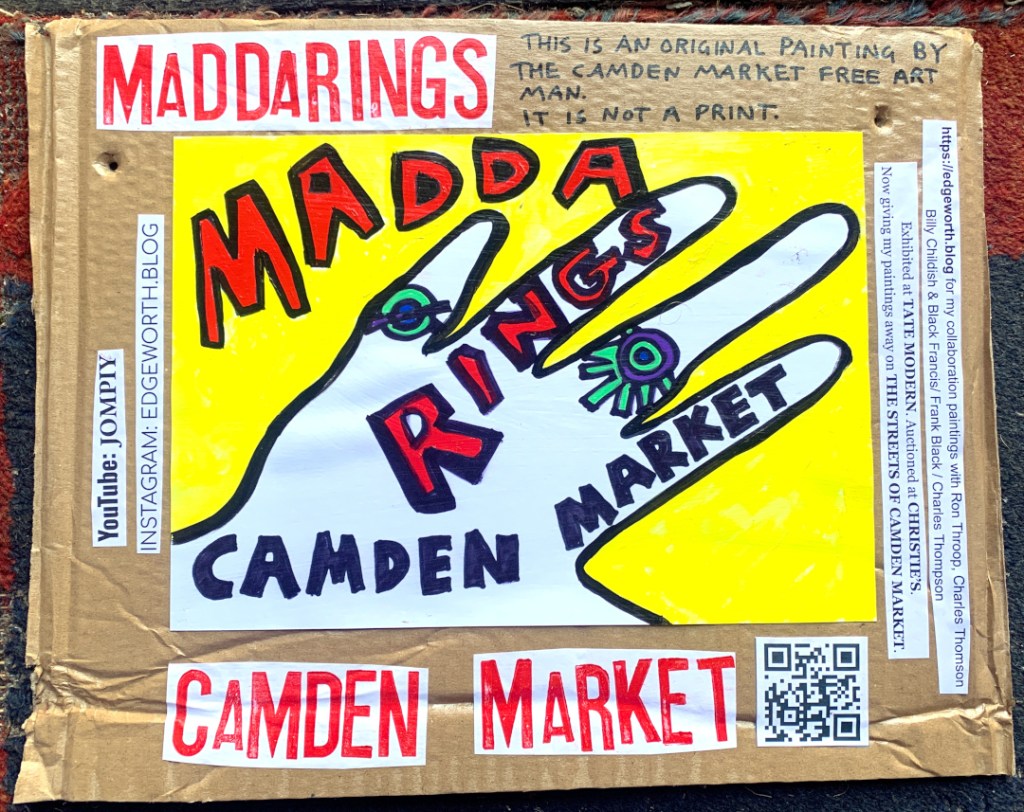 MADDARINGS
THIS IS AN ORIGINAL PAINTING BY
THE CAMDEN MARKET FREE ART
MAN.
IT IS NOT A PRINT.
MADDA
RINGS
CAMDEN MARKET
YouTube: JOMPIY
INSTAGRAM: EDGEWORTH.BLOG
https://edgeworth.blog for my collaboration paintings with Ron Throop, Charles Thomson
Billy Childish & Black Francis/ Frank Black / Charles Thompson
Exhibited at TATE MODERN. Auctioned at CHRISTIE'S.
Now giving my paintings away on THE STREETS OF CAMDEN MARKET.
CAMDEN MARKET